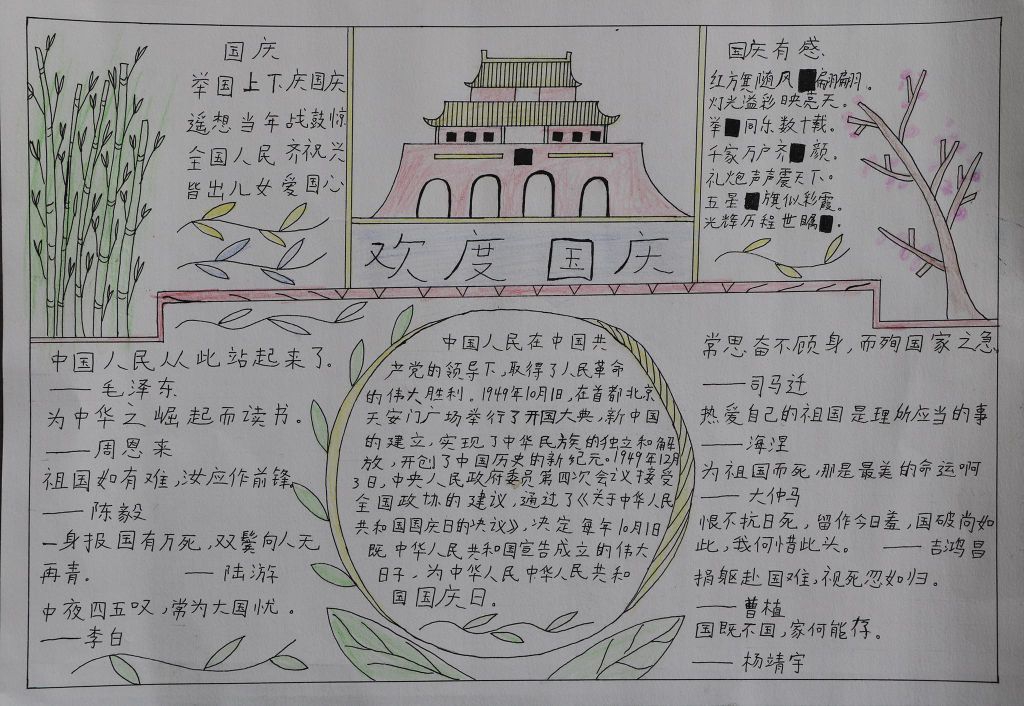 国庆
举国上下庆国庆
遥想当年战鼓惊
全国人民齐祝兴
皆出儿女爱国心
欢度国庆
国庆有感
红方舆随风翩翩。
灯光溢彩映亮天。
举同乐数十载。
千家万户齐颜。
礼炮声声震天下。
五星旗似彩霞。
光辉历程世瞩。
中国人民从此站起来了。
——毛泽东
为中华之崛起而读书。
——周恩来
祖国如有难，汝应作前锋。
——陈毅
一身报国有万死，双鬓向人无
再青。 ——陆游
中夜四五叹，常为大国忧。
——李白
中国人民在中国共
产党的领导下，取得了人民革命
的伟大胜利。1949年10月1日，在首都北京
天安门广场举行了开国大典，新中国
的建立，实现了中华民族的独立和解
放，开创了中国历史的新纪元。1949年12月
3日，中央人民政府委员第四次会议接受
全国政协的建议，通过了《关于中华人民
共和国国庆日的决议》，决定每年10月1日
既中华人民共和国宣告成立的伟大
日子，为中华人民中华人民共和
国国庆日。
常思奋不顾身，而殉国家之急
——司马迁
热爱自己的祖国是理所应当的事
——海涅
为祖国而死，那是最美的命运啊
——大仲马
恨不抗日死，留作今日羞，国破尚如
此，我何惜此头。 ——吉鸿昌
捐躯赴国难，视死忽如归。
——曹植
国既不国，家何能存。
——杨靖宇